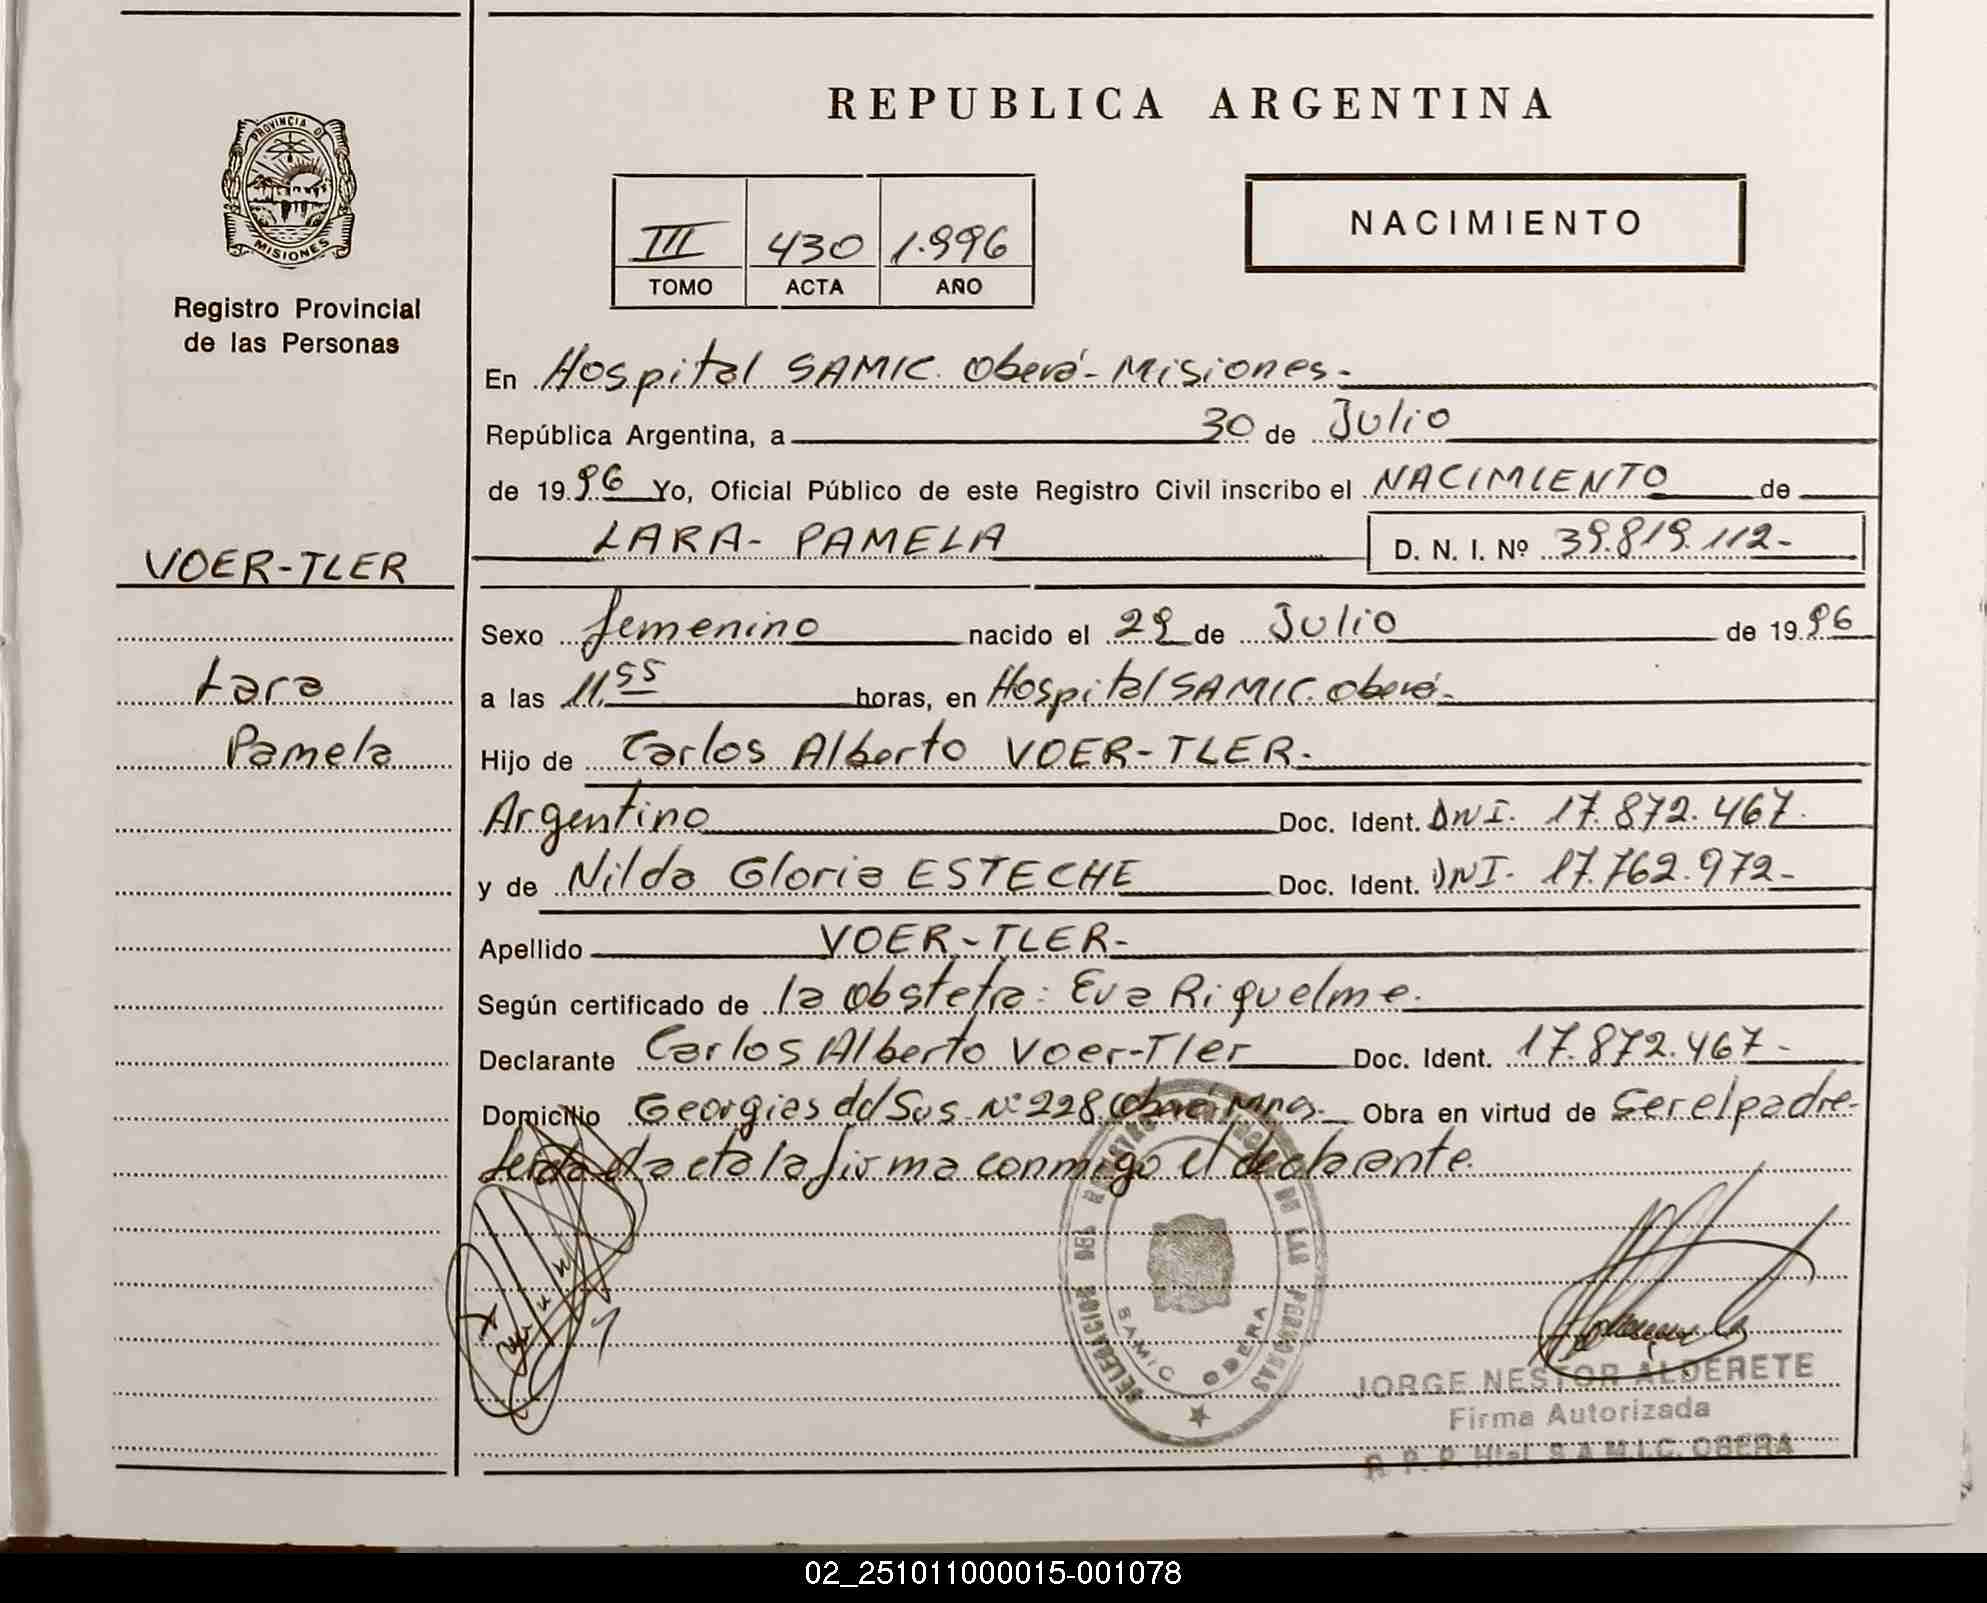 REPUBLICA ARGENTINA
PROVINCIA D
MISIONES
Registro Provincial
de las Personas
III 430 1.996
TOMO ACTA AÑO
NACIMIENTO
En Hospital SAMIC Oberá - Misiones -
República Argentina, a 30 de Julio
de 1996 Yo, Oficial Público de este Registro Civil inscribo el NACIMIENTO de
LARA - PAMELA D. N. I. Nº 39.819.112-
VOER-TLER
Sexo femenino nacido el 29 de Julio de 1996
Lara
a las 11,55 horas, en Hospital SAMIC. Oberá-
Pamela
Hijo de Carlos Alberto VOER-TLER-
Argentino Doc. Ident. DNI. 17.872.467.
y de Nilda Gloria ESTECHE Doc. Ident. DNI. 17.762.972-
Apellido VOER-TLER-
Según certificado de la obstetra: Eva Riquelme.
Declarante Carlos Alberto Voer-Tler Doc. Ident. 17.872.467-
Domicilio Georgias del Sus Nº 228 Oberá Mnes. Obra en virtud de ser el padre-
el acta la firma conmigo el declarante.
DELEGACION DEL REGISTRO DE LAS PERSONAS
SAMIC OBERA
JORGE NESTOR ALDERETE
Firma Autorizada
R. P. P. Htal. S.A.M.I.C. OBERA
02_251011000015-001078